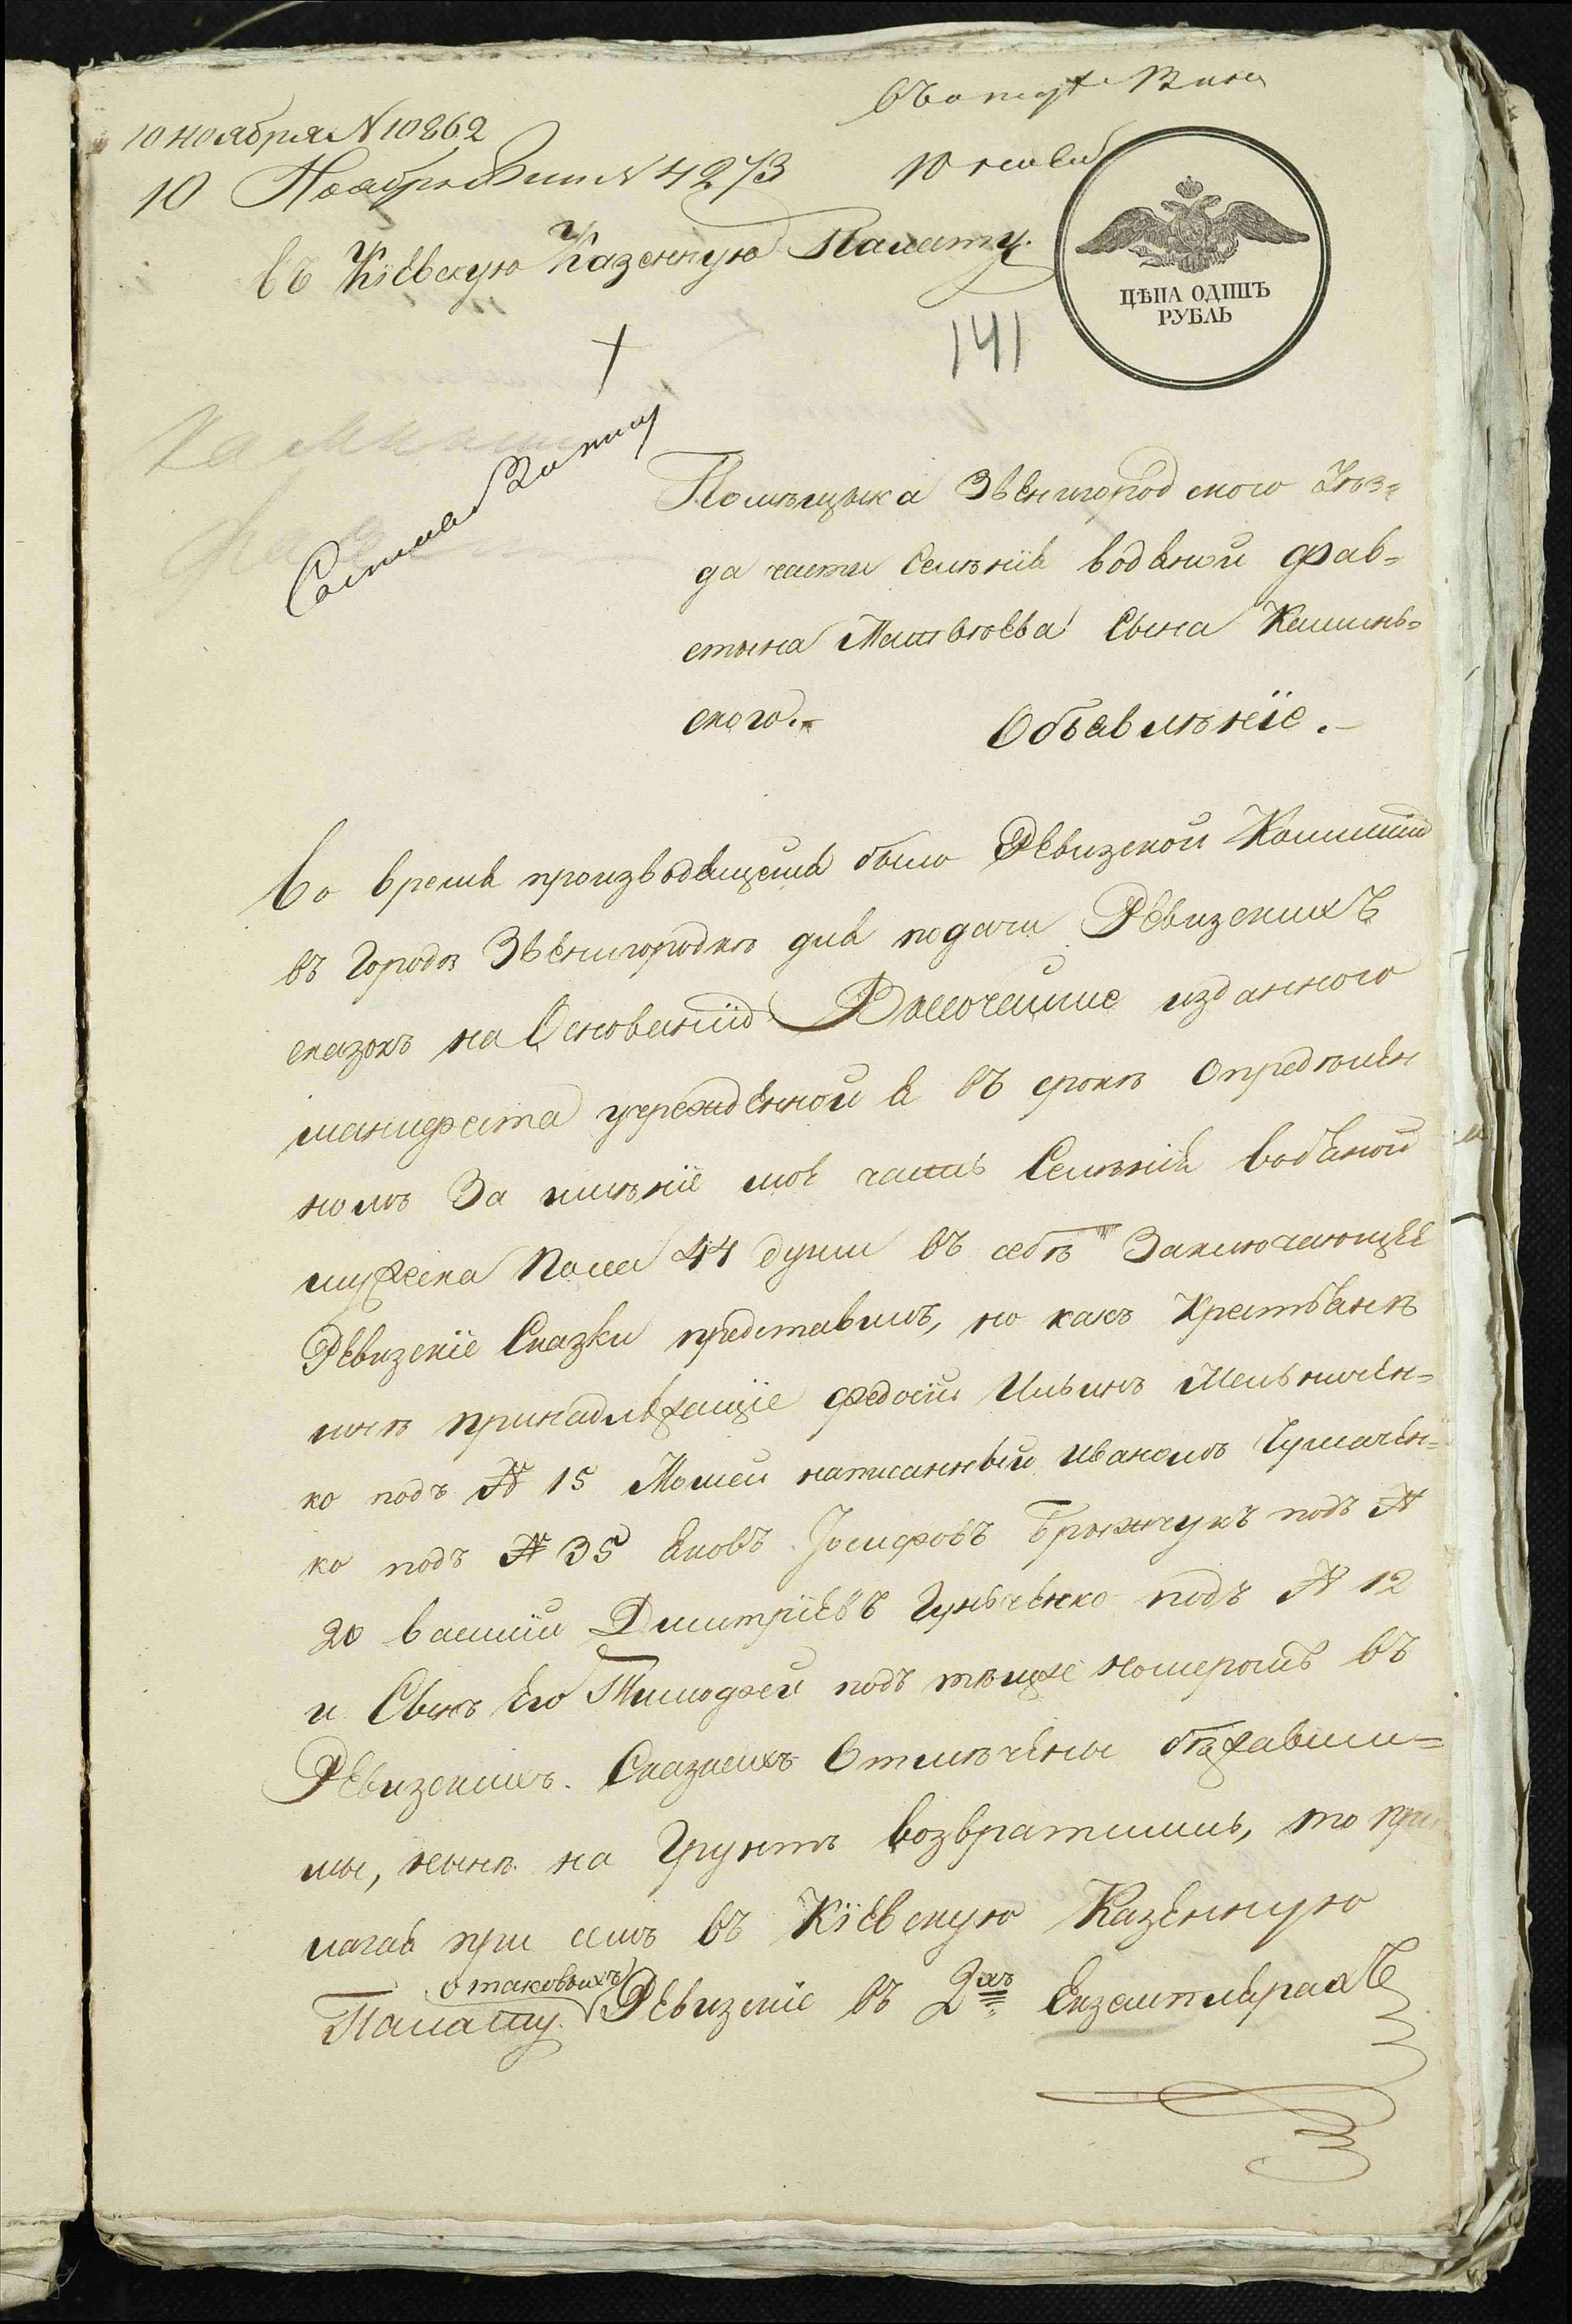 10 ноября N 10862
10 Ноября N 4273
10 нояб
въ Кіевскую Казенную Палату.
ЦѢНА ОДИНЪ
РУБЛЬ
141
Помѣщыка Звенигородского Уѣз=
да части Селѣнія водяной Фав=
стына Матвѣева Сына Камынь=
ского.
Объявлѣніе.
Во время производящейся было Ревизской Комиссіи
въ Городѣ Звенигородкѣ для подачи Ревизскихъ
сказокъ на Основаніи Высочайше изданного
манифеста учрежденной я въ срокѣ Опредѣлен
номъ За имѣніе мое часть Селѣнія водяной
мужеска Пола 44 души въ себѣ Заключающее
Ревизскіе Сказки представилъ, но какъ Крестьянѣ
мнѣ принадлежащіе Федосій Ильинъ Мельничен=
ко подъ N 15 Мосей написанный Ивановъ Чумачен=
ко подъ N 35 Яковъ Іосифовъ Брынчукъ подъ N
20 васшій Дмитріевъ Гуньченко подъ N 12
и Сынъ Его Тимофей подъ тѣмже номеромъ въ
Ревизскихъ Сказкахъ Отмѣчены бѣжавши=
мы, нынѣ на Грунтъ возвратились, то при
лагая при семъ въ Кіевскую Казенную
о таковыхъ
Палату. Ревизскіе въ 2хъ Екземплярахъ